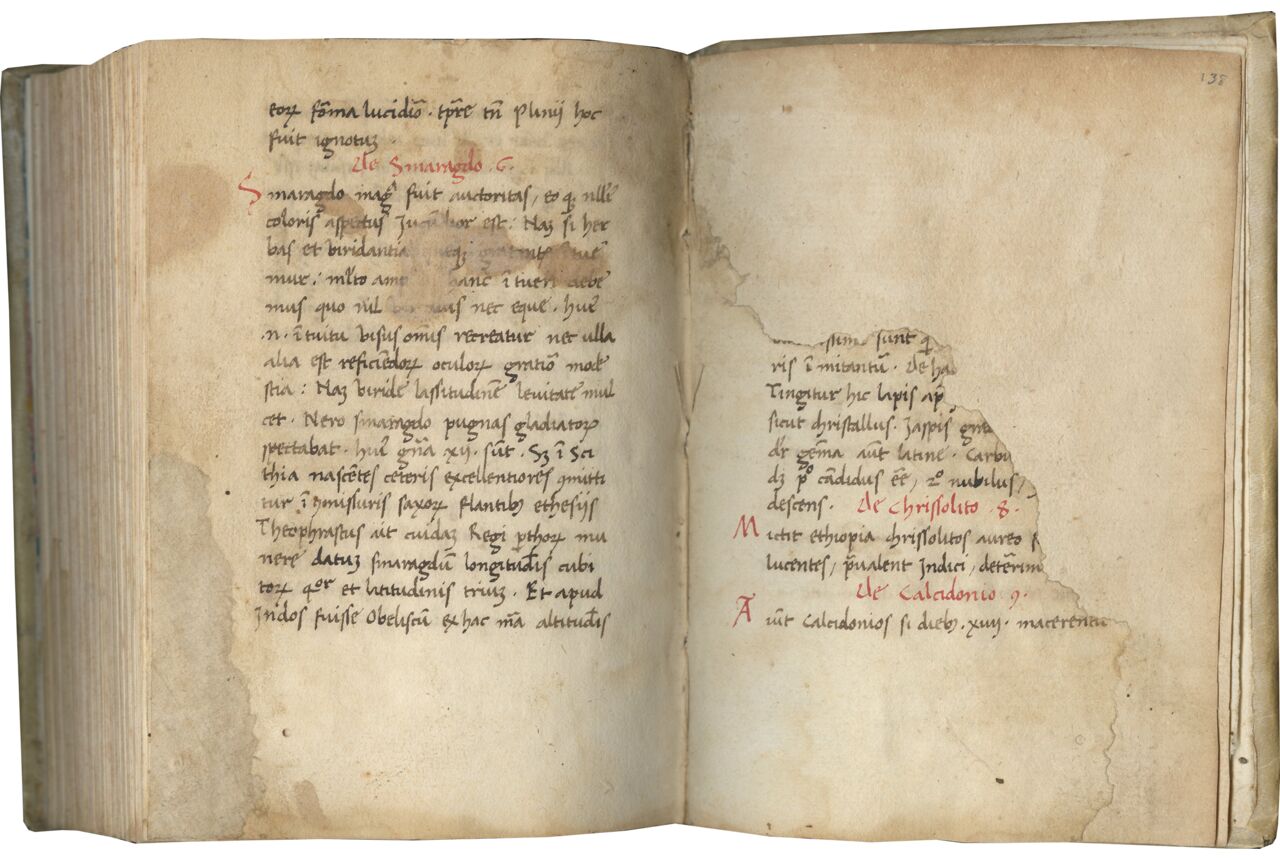 eoꝝ fōma lucidiō. tp̄re tn̄ Plinij hoc
fuit ignotuꝫ.
De Smaragdo .6.
Smaragdo mag̅ fuit auctoritas, eo q nlli᷑
coloris aspectus Jucū bor est: Naꝫ si her
bas et viridantia gratint ītue᷑
mur: ml̓to am hanc ītueri debe
mus quo nil nec eque. hui᷑
.n. ītuitu visus om̅is recreatur nec ulla
alia est reficiēdoꝝ oculoꝝ gratiō mode
stia: Naꝫ viride lassitudinē levitate mul
cet. Nero smaragdo pugnas gladiatoꝝ
spectabat. hui᷑ gn̄a xij. sūt. Sꝫ ī Sci
thia nascētes ceteris excellentiores qmitti
tur ī ɔmissuris saxoꝝ flantibꝫ ethesijs
Theophrastus ait cuidaꝫ Regi ꝑthoꝝ mu
nere datuꝫ smaragdū longitudīs cubi
toꝝ qͦr et latitudinis triuꝫ. Et apud
Jndos fuisse Obeliscū ex hac mā altitudīs
138
sunt q
ris īmitantū. De ha
Tingitur hic lapis ap̄
sicut christallus. Jaspis gra
dr̄ gēma aūt latine. Carbu
dꝫ pͦ cādidus eē, 2ͦ nubilus,
descens. De Chrissolito .8.
Mictit ethiopia chrissolitos aureo f
lucentes, p̄ualent Jndici, deterim
De Calcidonio 9.
Aiūt Calcidonios si diebꝫ .xviij. macerentu